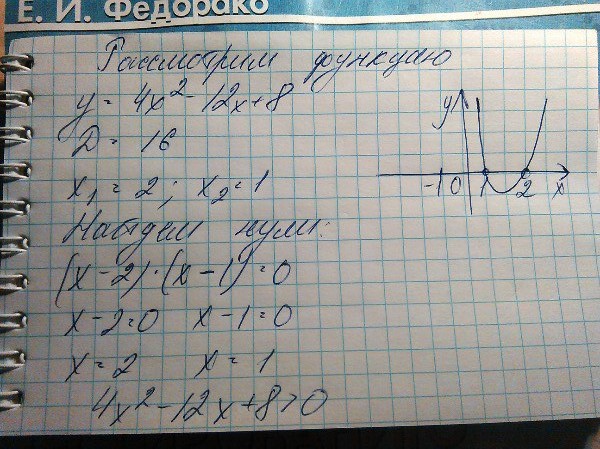 Е. И. Федорако
Рассмотрим функцию
y = 4x² - 12x + 8
D = 16
x₁ = 2 ; x₂ = 1
Найдем нули:
(x - 2) · (x - 1) = 0
x - 2 = 0 x - 1 = 0
x = 2 x = 1
4x² - 12x + 8 > 0
y
-1 0 1 2 x